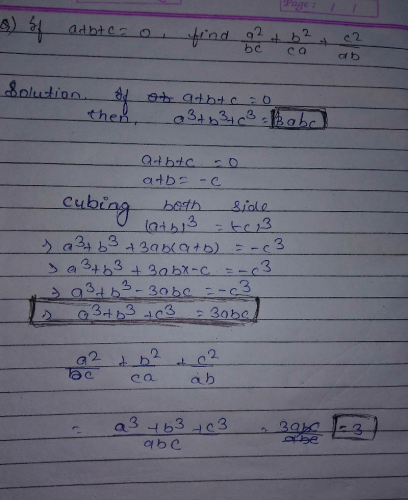 Page:
Q) If a+b+c=0, find a²/bc + b²/ca + c²/ab
Solution. If a+b+c=0
then, a³+b³+c³=3abc
a+b+c =0
a+b= -c
cubing both side
(a+b)³ =(-c)³
⇒ a³+b³+3ab(a+b) = -c³
⇒ a³+b³+3abx-c = -c³
⇒ a³+b³-3abc = -c³
⇒ a³+b³+c³ =3abc
a²/bc + b²/ca + c²/ab
= a³+b³+c³/abc = 3abc/abc =3